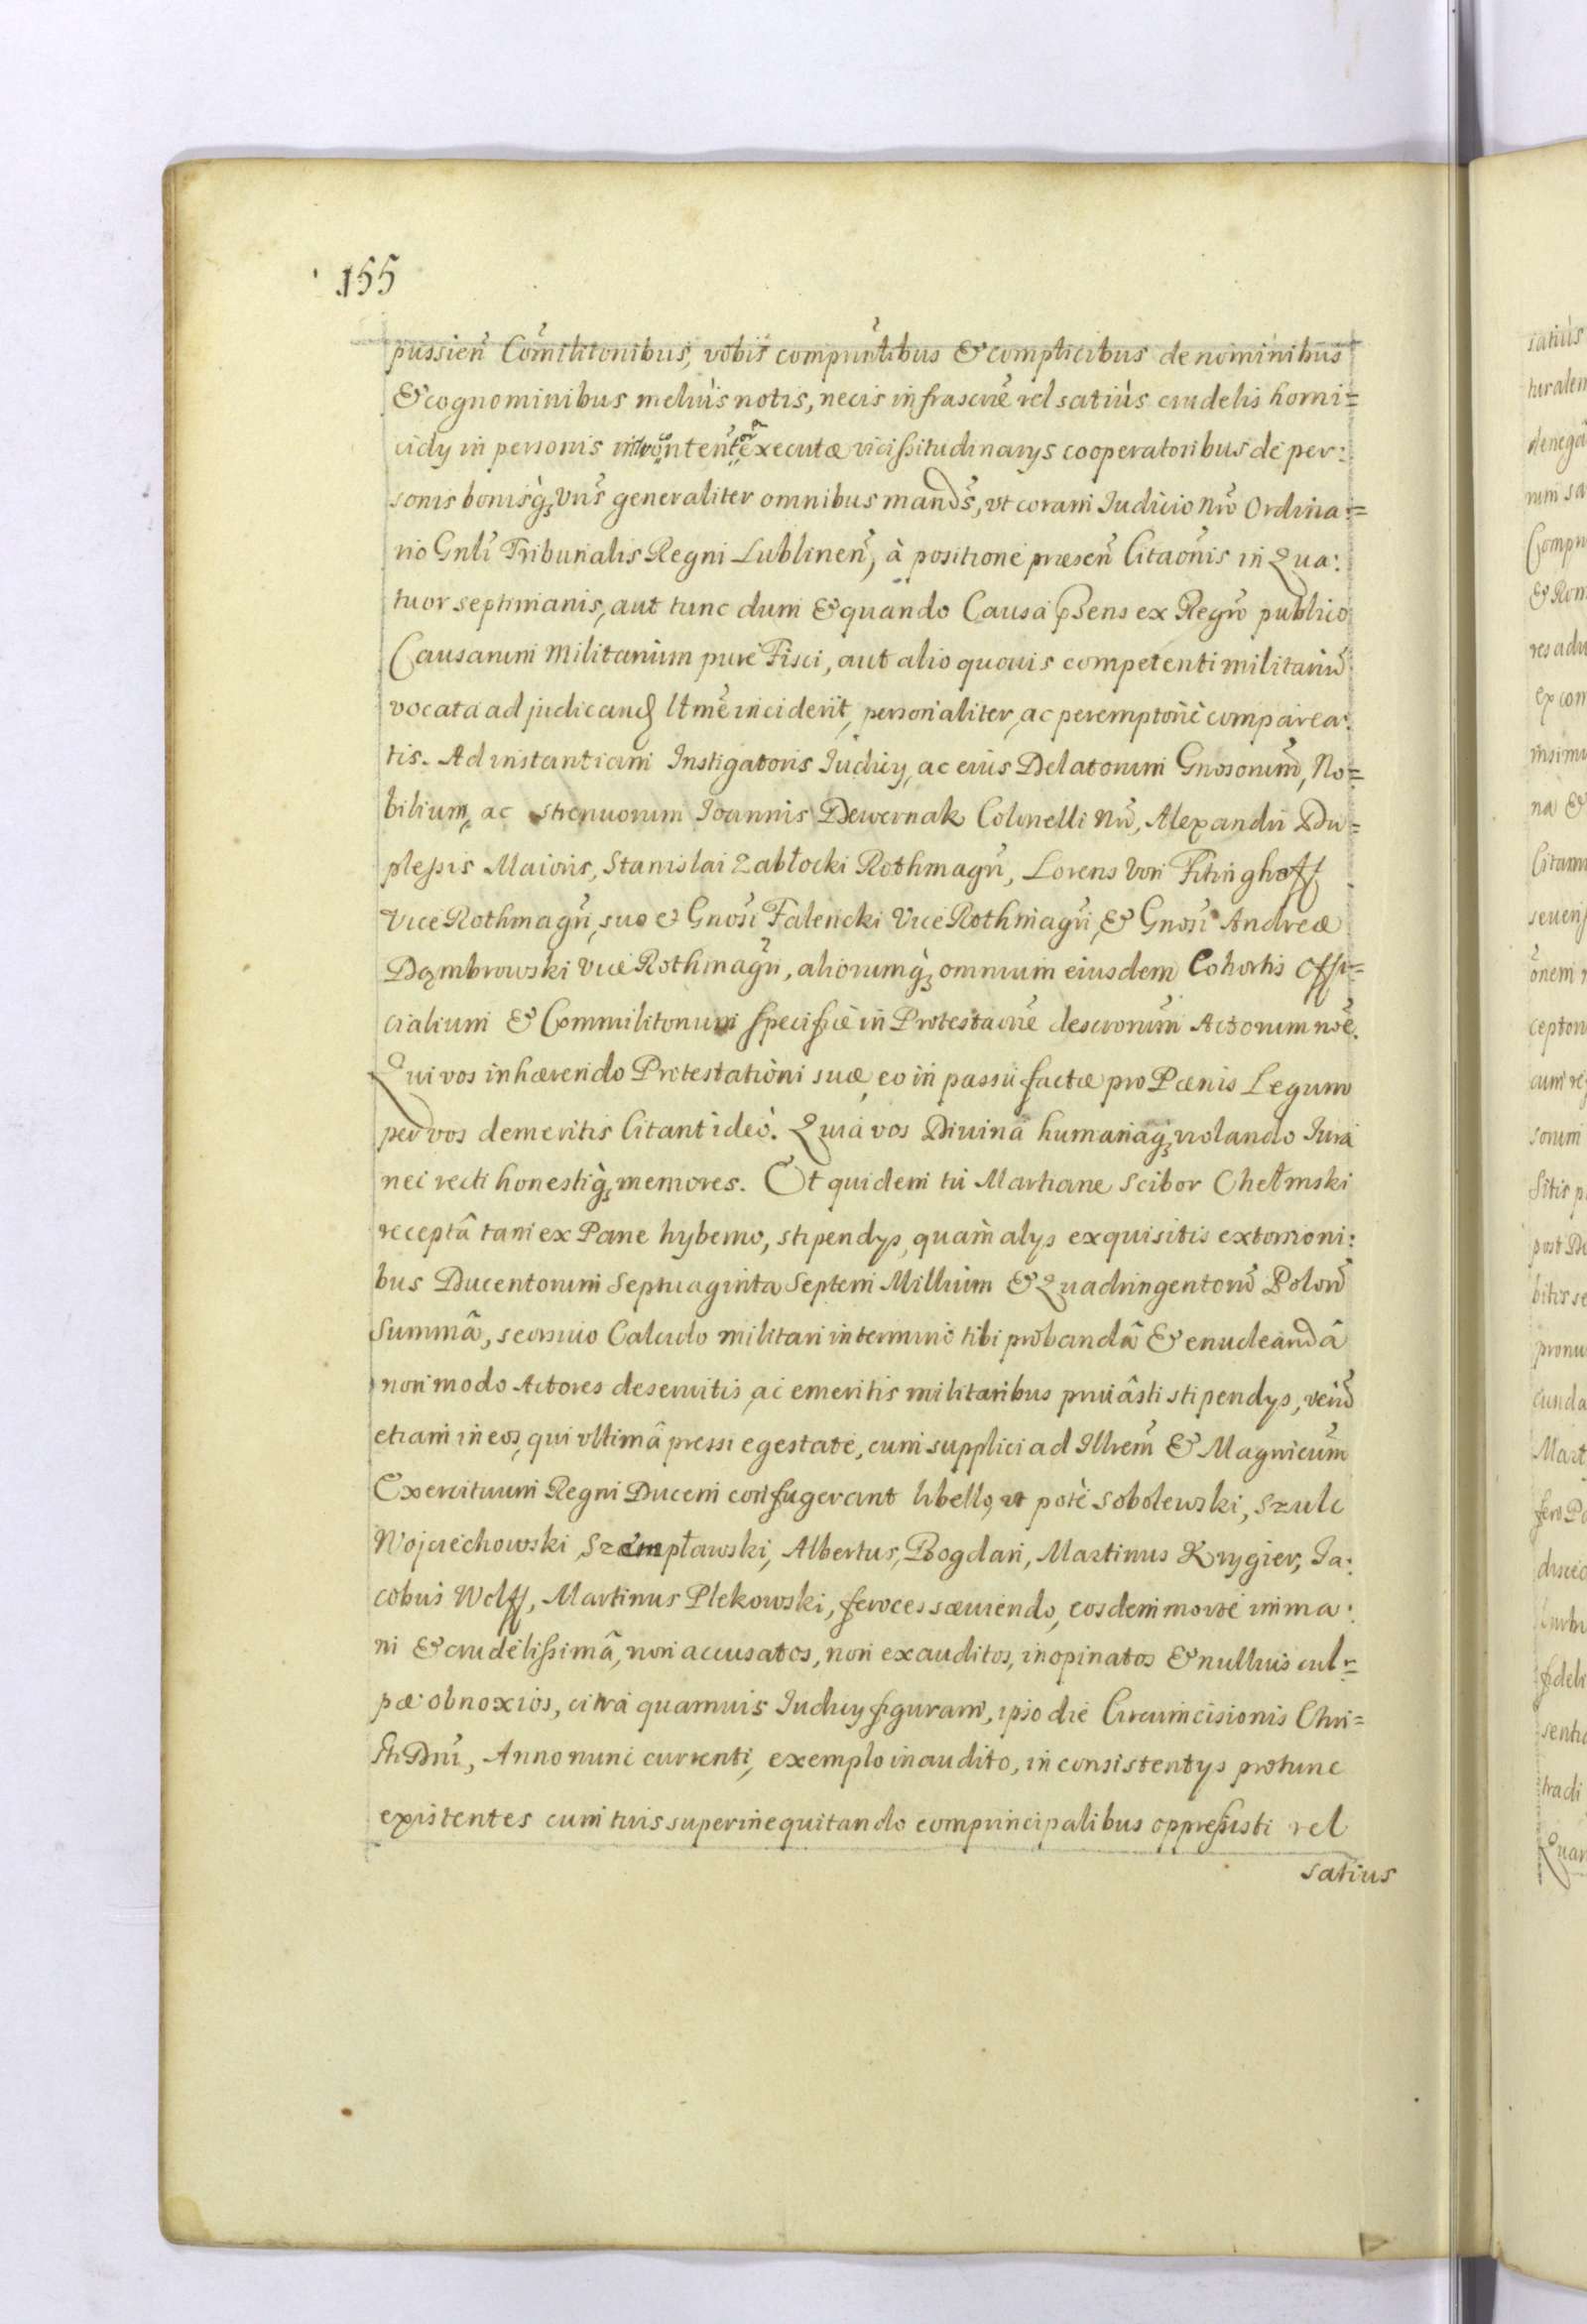 155
pussień Com̃ilitonibus, vobis compuntibus & complicibus de nominibus
& cognominibus meliùs notis, necis infrascrie vel satiùs crudelis homi=
cidÿ in personis executæ vicissitudinarÿs cooperatoribus de per:
sonis bonisq́ vris generaliter omnibus mands, vt coram Iudicio nro Ordina:=
rio Gnli Tribunalis Regni Lublinen, à positione præsen Citaonis in Qua:
tuor septimanis, aut tunc dum & quando Causa psens ex Regro publico
Causarum Militarium purè Fisci, aut alio quouis competenti militariũ
vocata ad judicand ltme inciderit, personaliter, ac peremptoriè comparea:
tis. Ad instantiam Instigatoris Iudicÿ, ac eius Delatorum Gnosorum, No=
bilium, ac strenuorum Ioannis Dewernak Colonelli nri, Alexandri Du=
plessis Maioris, Stanislai Zabłocki Rothmagri, Lorens Von Fitinghoff
Vice Rothmagri, suo & Gnosi Falencki Vice Rothmagri, & Gnosi Andreæ
Dąmbrowski Vice Rothmagri, aliorumq́ omnium eiusdem Cohortis Offi=
cialium & Commilitonum specificè in Protestacne descronum Actorum noe.
Qui vos inhærendo Protestationi suæ, eo in passu factæ pro Pænis Legum
per vos demeritis Citant ideò. Quia vos Diuina humanaq́ violando Iura
nec recti honestiq́ memores. Et quidem tu Martiane Scibor Chełmski
receptâ tam ex Pane hyberno, stipendÿs, quàm alÿs exquisitis extorsioni:
bus Ducentorum Septuaginta Septem Millium & Quadringentorũ Polon
Summâ, seorsiuo Calculo militari in termino tibi probandâ & enucleandâ
non modo Actores deseruitis, ac emeritis militaribus priuâsti stipendÿs, verũ
etiam in eos, qui vltimâ pressi egestate, cum supplici ad Illrem & Magnicum
Exercituum Regni Ducem confugerant libello, vt potè Sobolewski, Szulc
Wojciechowski, Szempławski, Albertus, Bogdan, Martinus Krygier, Ia:
cobus Wolff, Martinus Plekowski, feroces sæuiendo, eosdem morte imma:
ni & crudelissimâ, non accusatos, non exauditos, inopinatos & nullius cul=
pæ obnoxios, citra quamuis Iudicÿ figuram, ipso die Circumcisionis Chri=
sti Dni, Anno nunc currenti, exemplo inaudito, in consistentÿs protunc
existentes cum tuis superinequitando comprincipalibus oppressisti vel
satius